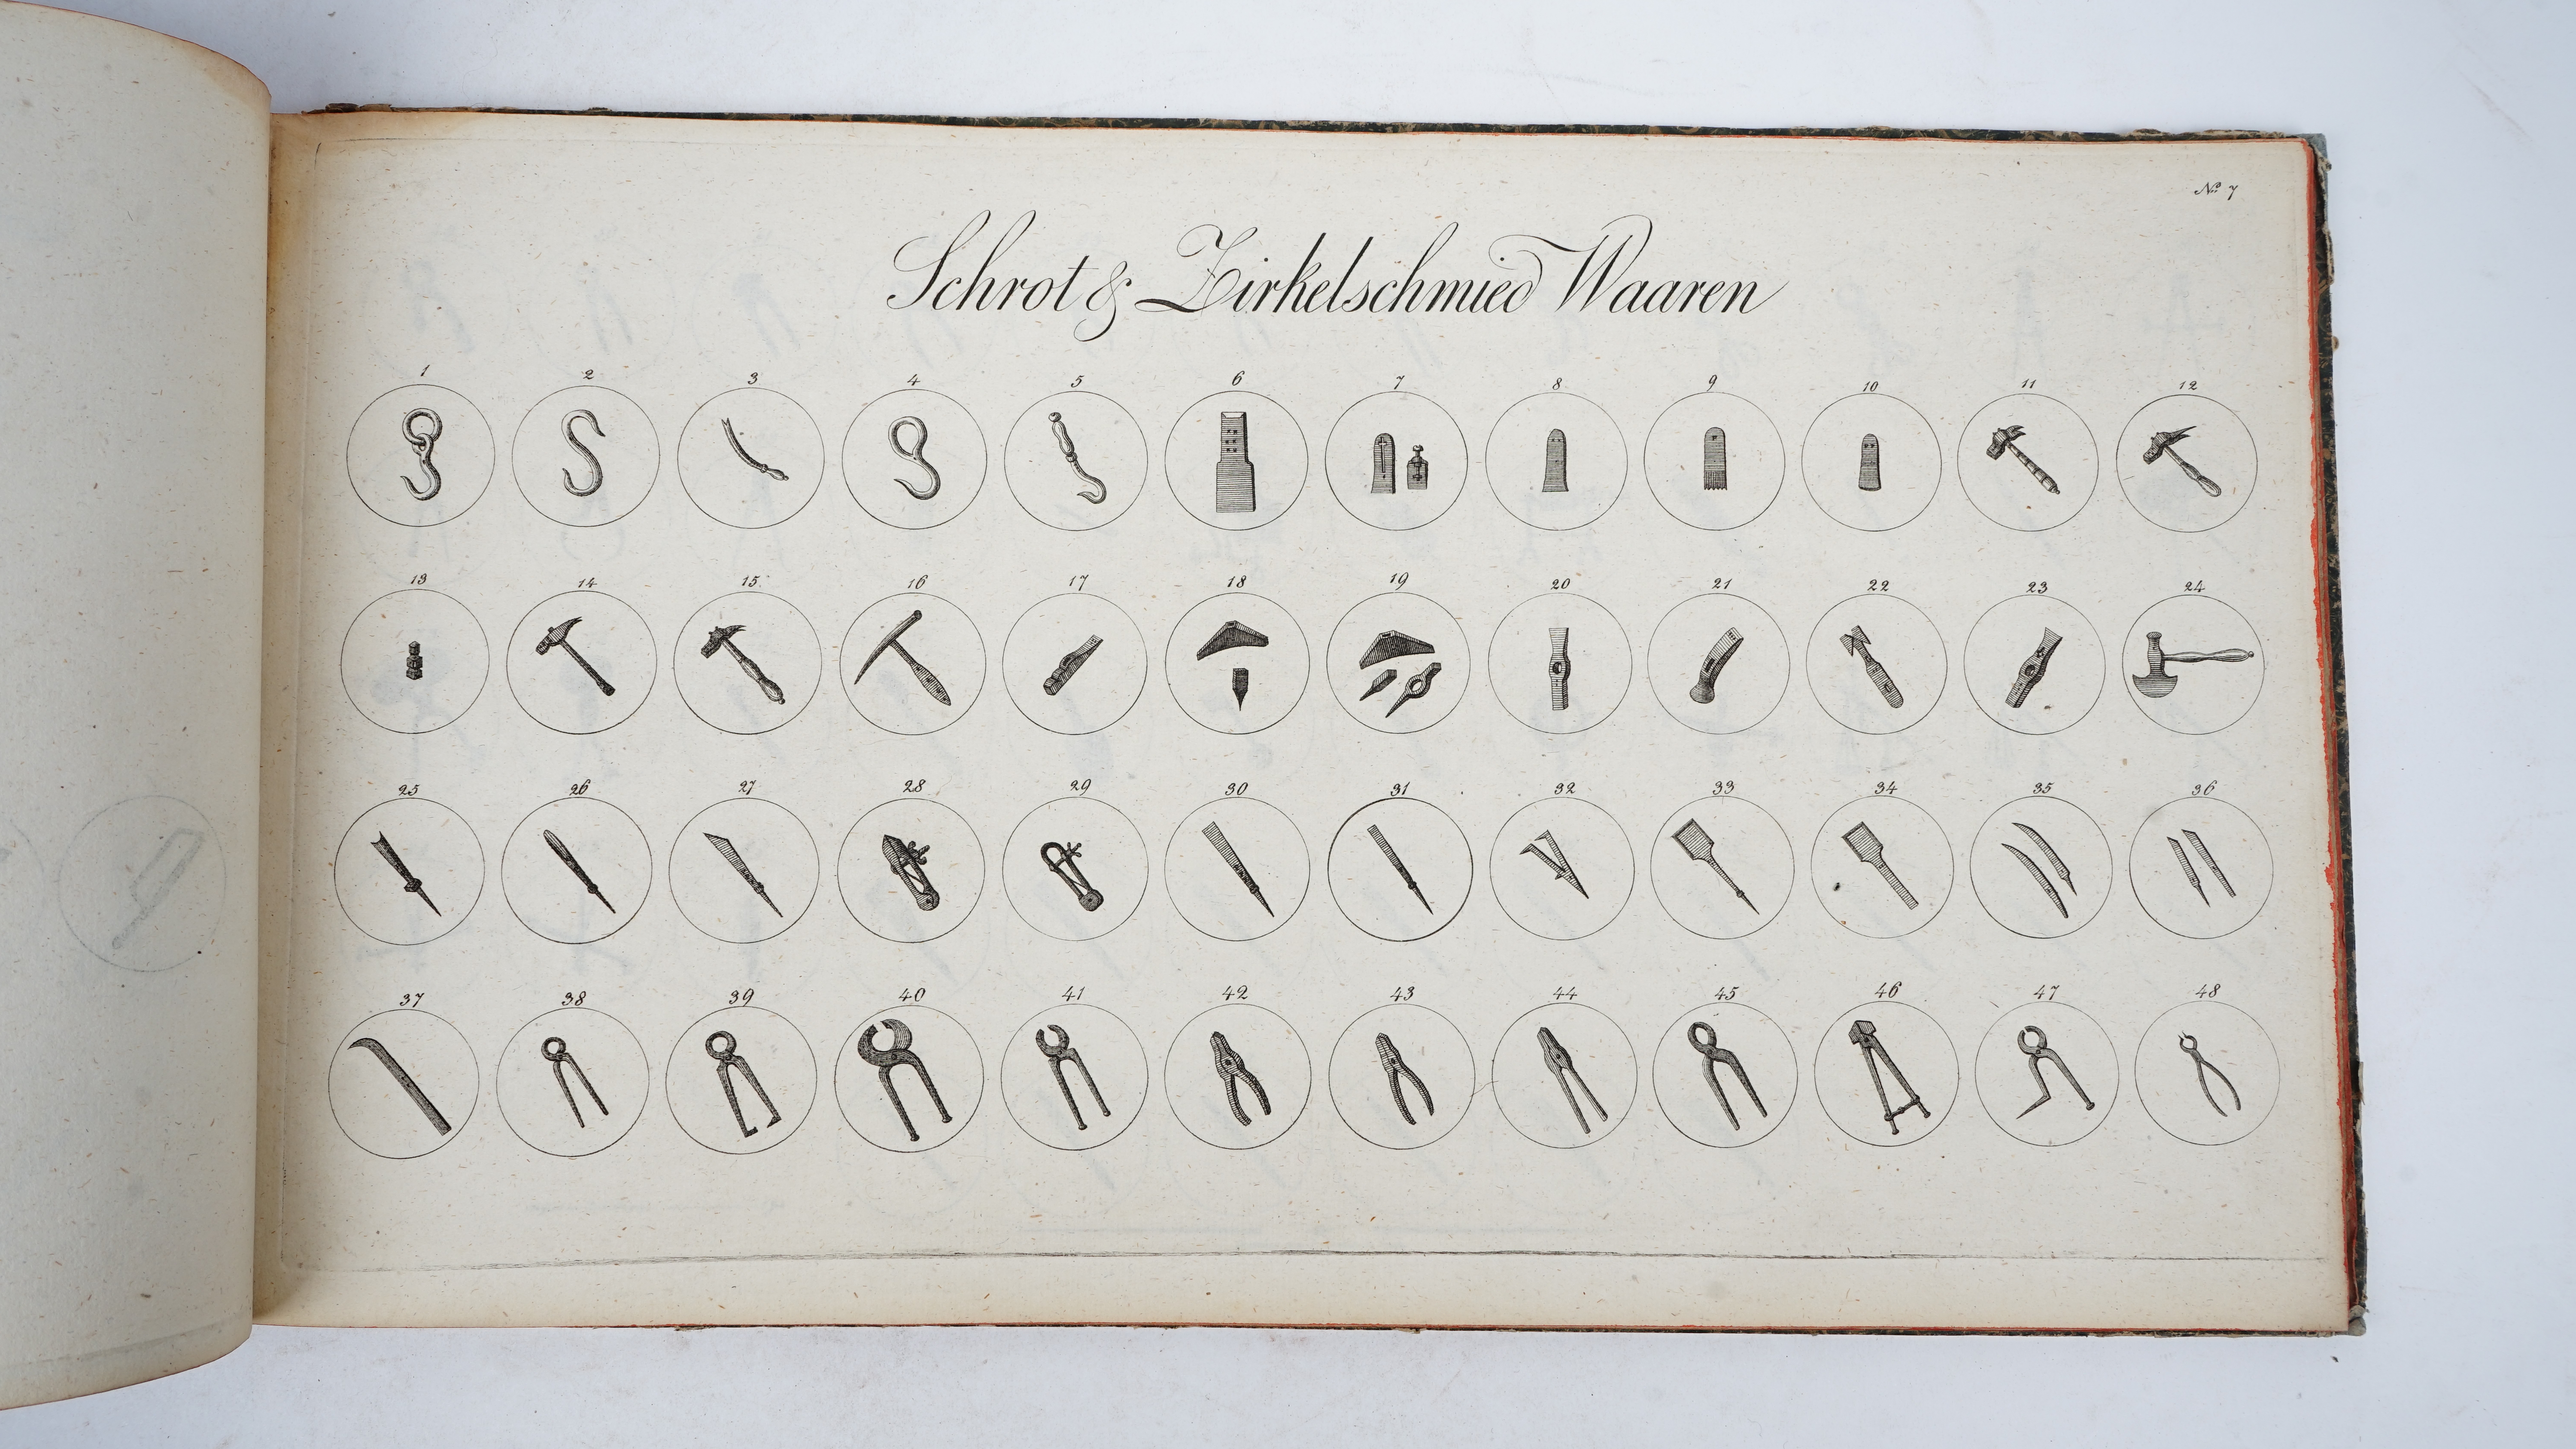 No 7
Schrot & Zirkelschmied Waaren
1 2 3 4 5 6 7 8 9 10 11 12
13 14 15 16 17 18 19 20 21 22 23 24
25 26 27 28 29 30 31 32 33 34 35 36
37 38 39 40 41 42 43 44 45 46 47 48